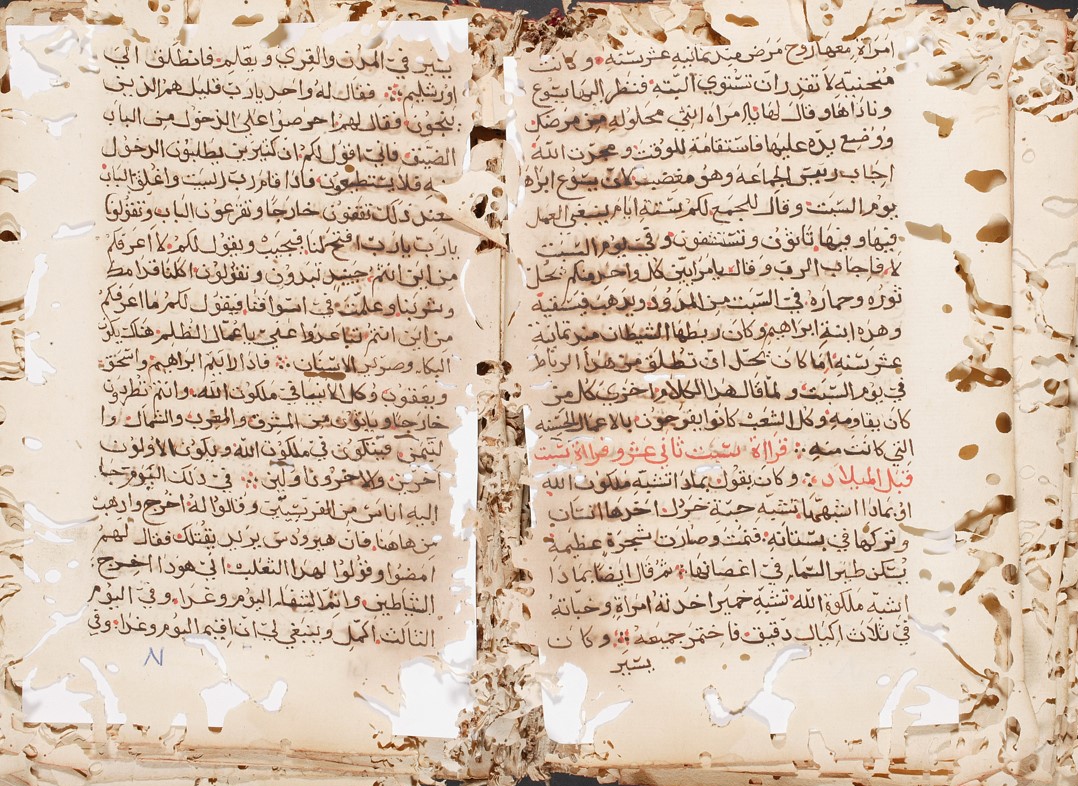 امراة معها روح مرض منذ ثمانية عشر سنه. وكانت
منحنيه لا تقدر ان تستوي البته فنظر اليها يسوع
وناداها وقال لها يا امراه انتي محلوله من مرضك
ووضع يده عليها فاستقامة للوقت ومجدت الله
اجاب ريس الجماعه وهو مغضب لان يسوع ابراه
يوم السبت وقال للجمع لكم ستة ايام ينبغي العمل
فيها وفيها تاتون وتستشفون وفي يوم السبت
لا. فاجاب الرب وقال يا مرايين كل واحد منكم يحل
ثوره وحماره في السبت من المدود ويذهب فيسقيه
وهذه ابنة ابراهيم وكان ربطها الشيطان منذ ثمانية
عشر سنه اما كان يحل ان تطلق من هذا الرباط
في يوم السبت ولما قال هذا الكلام اخزى كل من
كان يقاومه وكل الشعب كانوا يفرحون بالاعمال الحسنه
التي كانت منه قراة سبت ثاني عشر وقراة سبت
قبل الميلاد وكان يقول بماذا تشبه ملكوت الله
او بماذا اشبهها تشبه حبة خردل اخذها انسان
وتركها في بستانه فنمت وصارت شجرة عظيمة
يستكن طير السما في اغصانها ثم قال ايضا بماذا
اشبه ملكوة الله تشبه خمير اخذته امراه وخباته
في ثلاث اكيال دقيق فاختمر جميعه وكان
يسير
يسير في المدن والقري ويعلم فانطلق الي
اورشليم فقال له واحد يارب قليل هم الذين
ينجون وقال لهم احرصوا على الدخول من الباب
الضيق فاني اقول لكم ان كثيرين يطلبون الدخول
منه فلا يستطيعون فاذا قام رب البيت واغلق الباب
فعند ذلك تقفون خارجا وتقرعون الباب وتقولوا
يارب يارب افتح لنا فيجيب ويقول لكم لا اعرفكم
من اين انتم حينيذ تبدون وتقولون اكلنا قدامك
وشربنا وعلمت في اسواقنا فيقول لكم ما اعرفكم
من اين انتم تباعدوا عني يا عمال الظلم هناك يكون
البكا وصرير الاسنان فاذا رايتم ابراهيم واسحق
ويعقوب وكل الانبيا في ملكوت الله وانتم تطردون
خارجا وياتون من المشرق والمغرب والشمال وا
ليمن فيتكون في ملكوت الله ويكون الاولون
اخرين والاخرون اولين في ذلك اليوم جا
اليه اناس من الفريسيين وقالوا له اخرج واذهب
من هاهنا فان هيرودس يريد يقتلك فقال لهم
امضوا وقولوا لهذا الثعلب اني هوذا اخرج
الشياطين واتم الشفاء اليوم وغدا وفي اليوم
الثالث اكمل وينبغي لي ان اقيم اليوم وغدا وفي